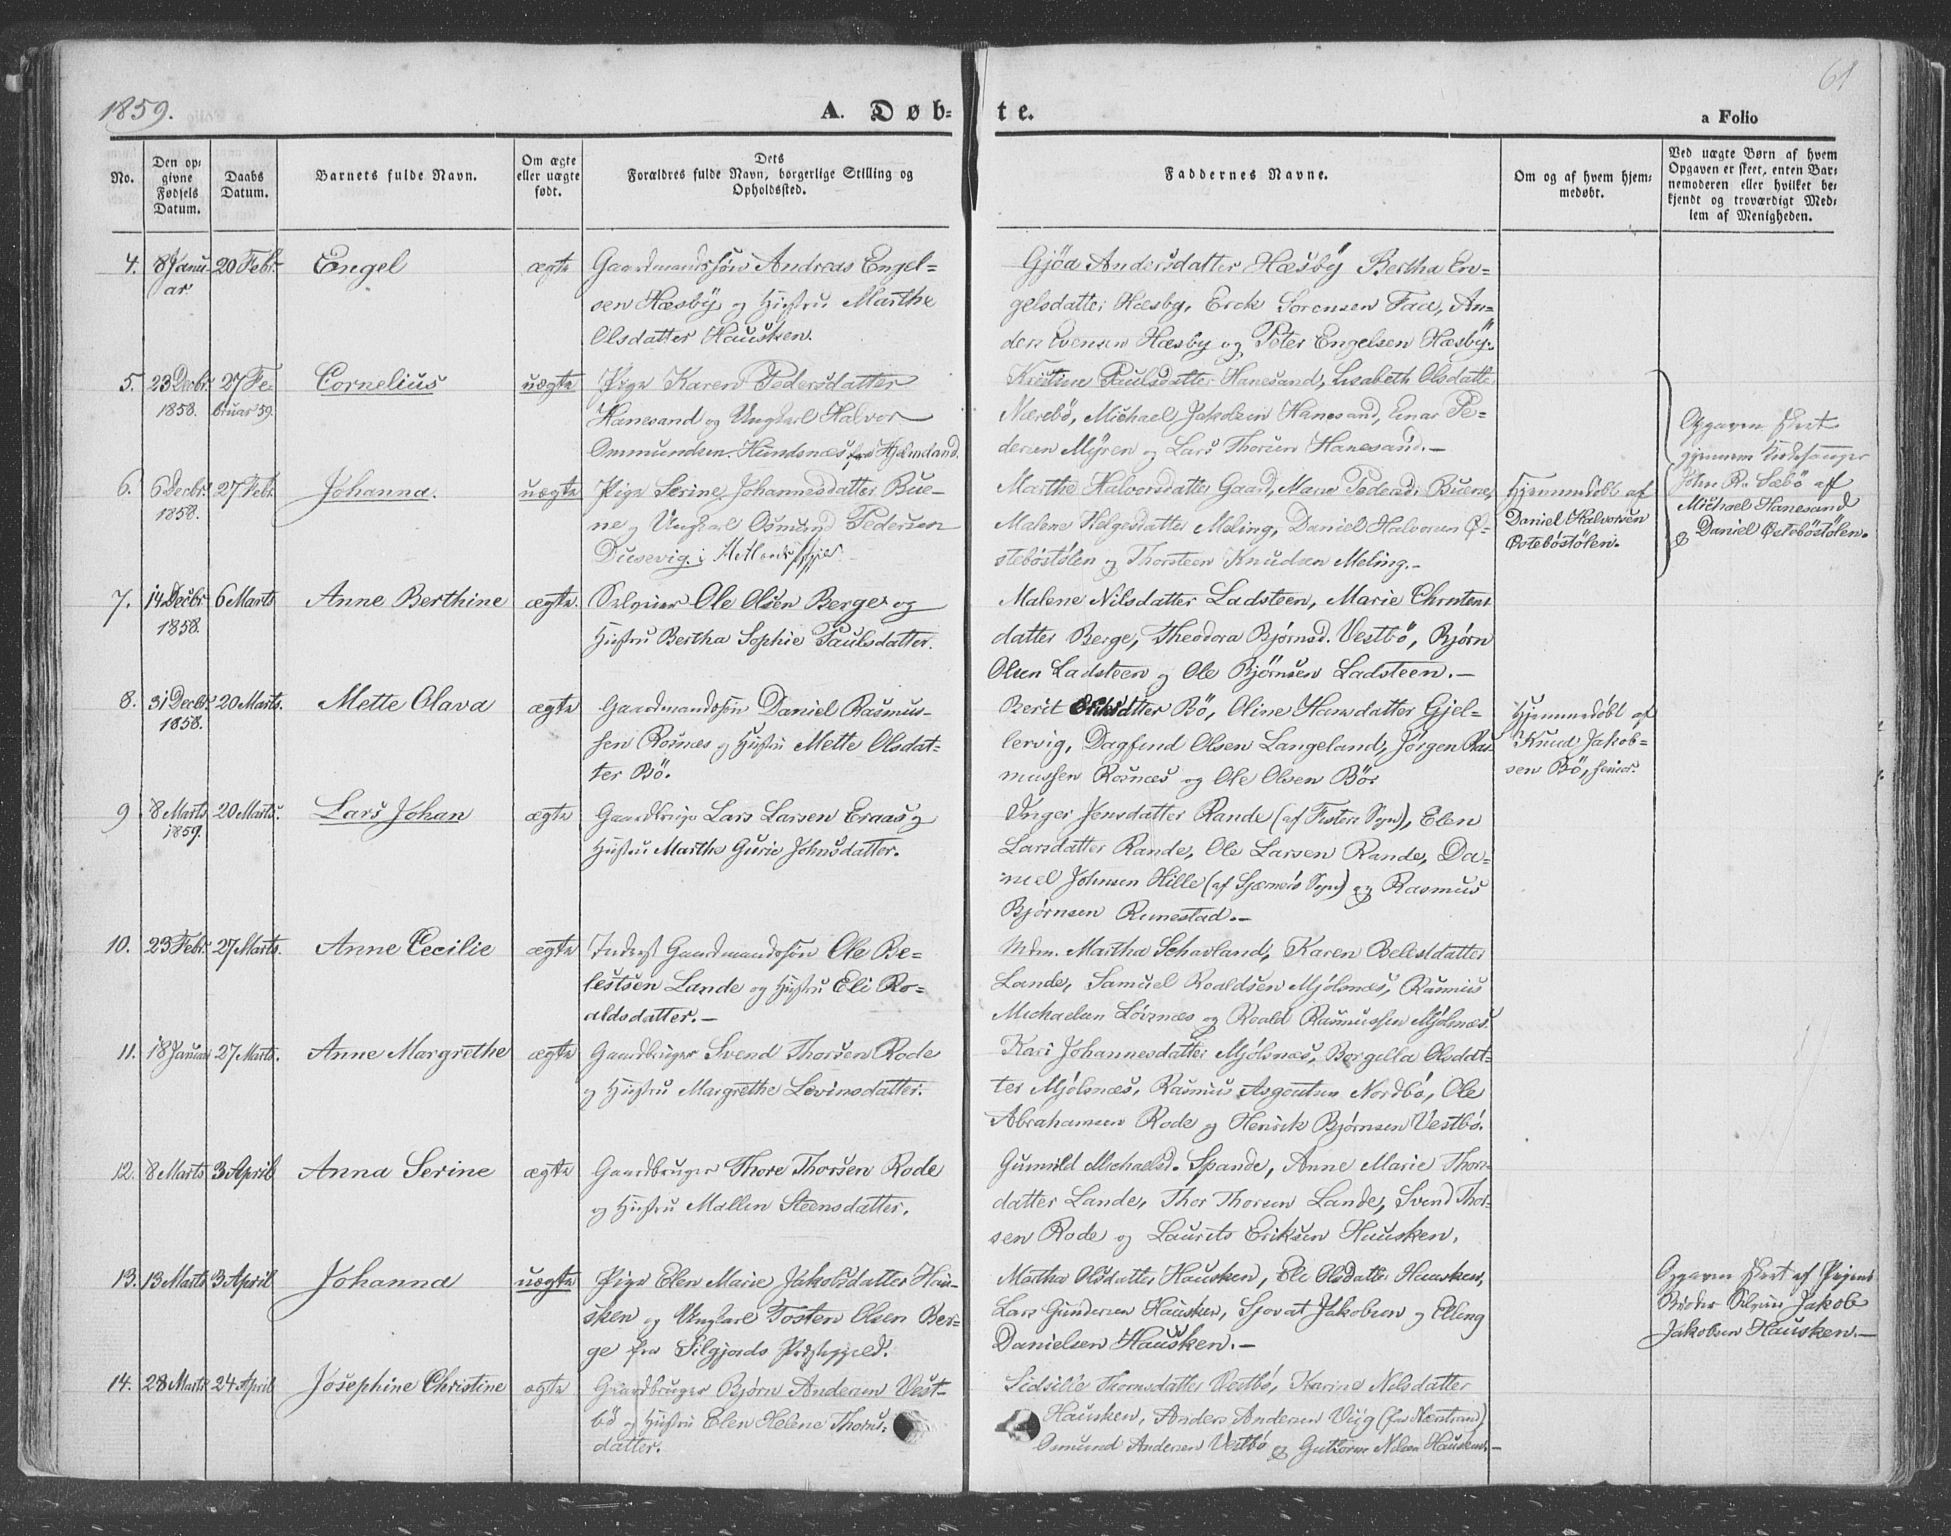 1859.
A. Døb-
te.
61
a Folio
No.
Den op-
givne
Fødsels
Datum.
Daabs
Datum.
Barnets fulde Navn.
Om ægte
eller uægte
født.
Dets
Forældres fulde Navn, borgerlige Stilling og
Opholdssted.
Faddernes Navne.
Om og af hvem hjem-
medøbt.
Ved uægte Børn af hvem
Opgaven er skeet, enten Bar-
nemoderen eller hvilket be-
kjendt og troværdigt Med-
lem af Menigheden.
4. 8 Janu-
ar.
20 Febr.
Engel
ægte
Gaardmandssøn Andreas Engel-
sen Hæsbÿ og Hustru Marthe
Olsdatter Hausken.
Gjöa Andersdatter Hæsbÿ Bertha En-
gelsdatter Hæsby, Erck Sorensen Faa, An-
ders Evensen Hæsby og Peter Engelsen Hæsbÿ.
5. 23 Decbr.
1858.
27 Fe-
bruar 59.
Cornelius
uægte
Pige Karen Pedersdatter
Hanesand og Ungkarl Halvor
Ommundsen Hundsnæs fra Hjelmeland.
Kristine Paulsdatter Hanesand, Lisabeth Olsdatter
Nærebö, Michael Jakobsen Hanesand, Einar Pe-
dersen Myren og Lars Thorsen Hanesand.-
Opgaven skeet
gjennem Kirkesanger
John R. Sæbö af
Michael Hanesand
& Daniel Östeböstölen.
6. 6 Decbr.
1858.
27 Febr.
Johanna.
uægte
Pige Serine Johannesdatter Bue-
ne og Ungkarl Osmund Pedersen
Dusevig i
Marthe Halvorsdatter Gaard, Maren Pedersd. Buene,
Malene Helgesdatter Meling, Daniel Halvorsen Ö-
steböstölen og Thorsteen Knudsen Meling.-
Hjemmedöbt af
Daniel Halvorsen
Östeböstölen.
7. 14 Decbr
1858.
6 Marts
Anne Berthine
ægte
Selveier Ole Olsen Berge og
Hustru Bertha Sophie Paulsdatter.
Malene Nilsdatter Ladsteen, Marie Christens
datter Berge, Theodora Bjørnsd. Vestbö, Bjørn
Olsen Ladsteen og Ole Bjørnsen Ladsteen.-
8. 31 Decbr.
1858.
20 Marts.
Mette Olava
ægte
Gaardmandssøn Daniel Rasmus-
sen Rosnæs og Hustru Mette Olsdat-
ter Bö.
Berit Bö, Oline Hansdatter Gjel-
lervig, Dagfind Olsen Langeland, Jørgen Ras-
mussen Rosnæs og Ole Olsen Bö
Hjemmedöbt af
Knud Jakob-
sen Bö, senior.
9 8 Marts
1859.
20 Marts.
Lars Johan
ægte
Gaardbruger Lars Larsen Eraas og
Hustru Marthe Gurie Johnsdatter.
Inger Jensdatter Rande (af Fister Sogn), Elen
Larsdatter Rande, Ole Larsen Rande, Da-
niel Johnsen Hille (af Sjærnerö Sogn) og Rasmus
Bjørnsen Runestad.-
10. 23 Febr.
27 Marts.
Anne Cecilie
ægte
Inderst Gaardmandssøn Ole Be-
lestsen Lande og Hustru Eli Ro-
aldsdatter.-
Mdm. Martha Schavland, Karen Belestdatter
Lande, Samuel Roaldsen Mjölsnæs, Rasmus
Michaelsen Lövnæs og Roald Rasmussen Mjölsnæs.
11. 18 Januar
27 Marts.
Anne Margrethe
ægte
Gaardbruger Svend Thorsen Rode
og Hustru Margrethe Levinsdatter.
Kari Johannesdatter Mjölsnæs, Borgella Olsdat-
ter Mjölsnæs, Rasmus Asgoutsen Nordbö, Ole
Abrahamsen Rode og Henrik Bjørnsen Vestbö.
12. 8 Marts
3 April
Anna Serine
ægte
Gaardbruger Thore Thorsen Rode
og Hustru Mallen Steensdatter.
Gunvild Michaelsd. Spande, Anne Marie Thors-
datter Lande, Thor Thorsen Lande, Svend Thor-
sen Rode og Laurits Eriksen Hausken.
13. 13 Marts
3 April
Johanna
uægte
Pige Elen Marie Jakobsdatter Hau-
sken og Ungkarl Tosten Olsen Ber-
ge fra Silgjords Præstegjeld.
Martha Olsdatter Hausken, Eli Olsdatter Hausken,
Lars Gundersen Hausken, Sjovat Jakobsen og Elling
Danielsen Hausken.-
Opgaven skeet af Pigens
Broder Jakob
Jakobsen Hausken.-
14. 28 Marts
24 April
Josephine Christine
ægte
Gaardbruger Bjørn Andersen Vest-
bö og Hustru Elen Helene Thoms-
datter.
Sidselle Thomsdatter Vestbö, Karine Nelsdatter
Hausken, Anders Andersen Viig (fra Nærstrand)
Osmund Andersen Vestbö og Guttorm Nilsen Hausken.-